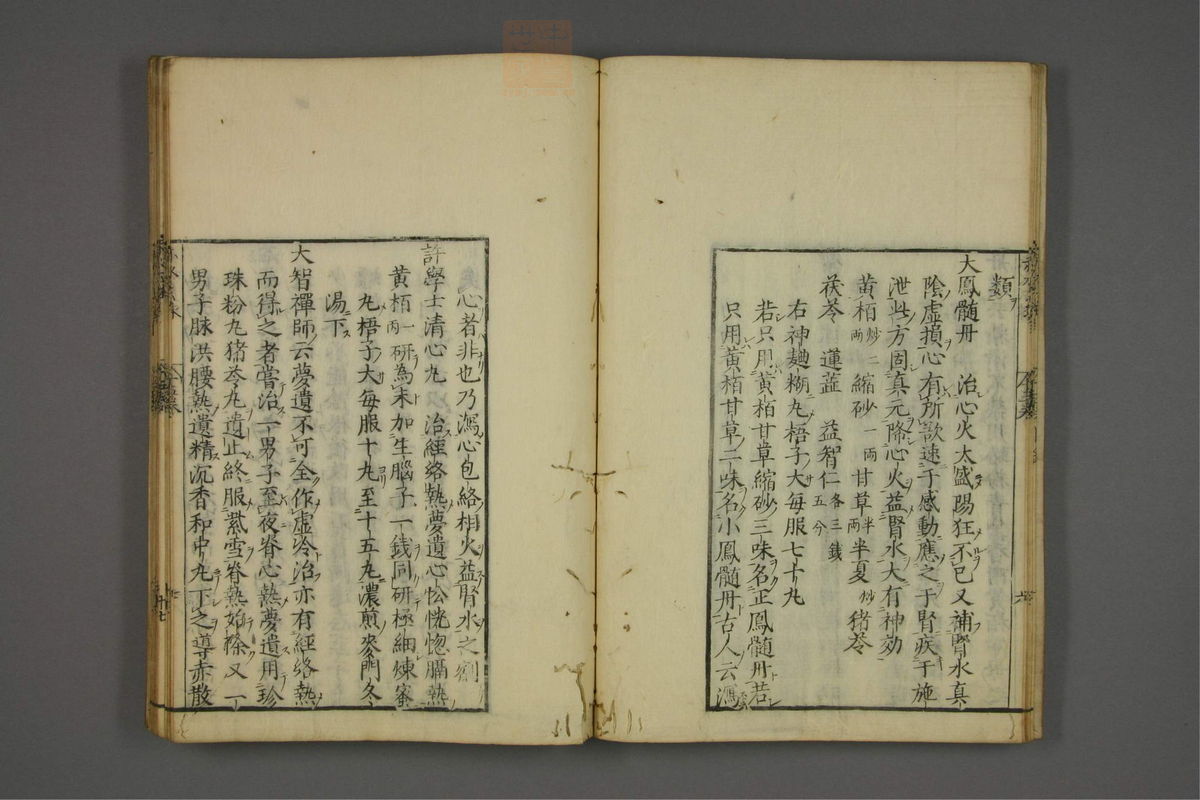 類
大鳳髓丹　治心火太盛陽狂不已又補腎水真
陰虛損心有所欲速于感動應之于腎疾于施
泄此方固真元降心火益腎水大有神効
黄栢炒二兩縮砂一兩甘草半兩半夏炒猪苓
茯苓　蓮蕋　益智仁各三錢五分
右神麯糊丸梧子大每服七十丸
若只用黄栢甘草縮砂三味名正鳳髓丹若
只用黄栢甘草二味名小鳳髓丹古人云瀉
心者非也乃瀉心包絡相火益腎水之劑
許學士清心丸　治經絡熱夢遺心忪恍惚膈熱
黄栢一兩研為末加生腦子一錢同研極細煉蜜
丸梧子大每服十丸至十五丸濃煎麥門冬
湯下
大智禪師云夢遺不可全作虛冷治亦有經絡熱
而得之者嘗治一男子至夜脊心熱夢遺用珍
珠粉丸猪苓丸遺止終服紫雪脊熱始除又一
男子脉洪腰熱遺精沉香和中丸下之導赤散